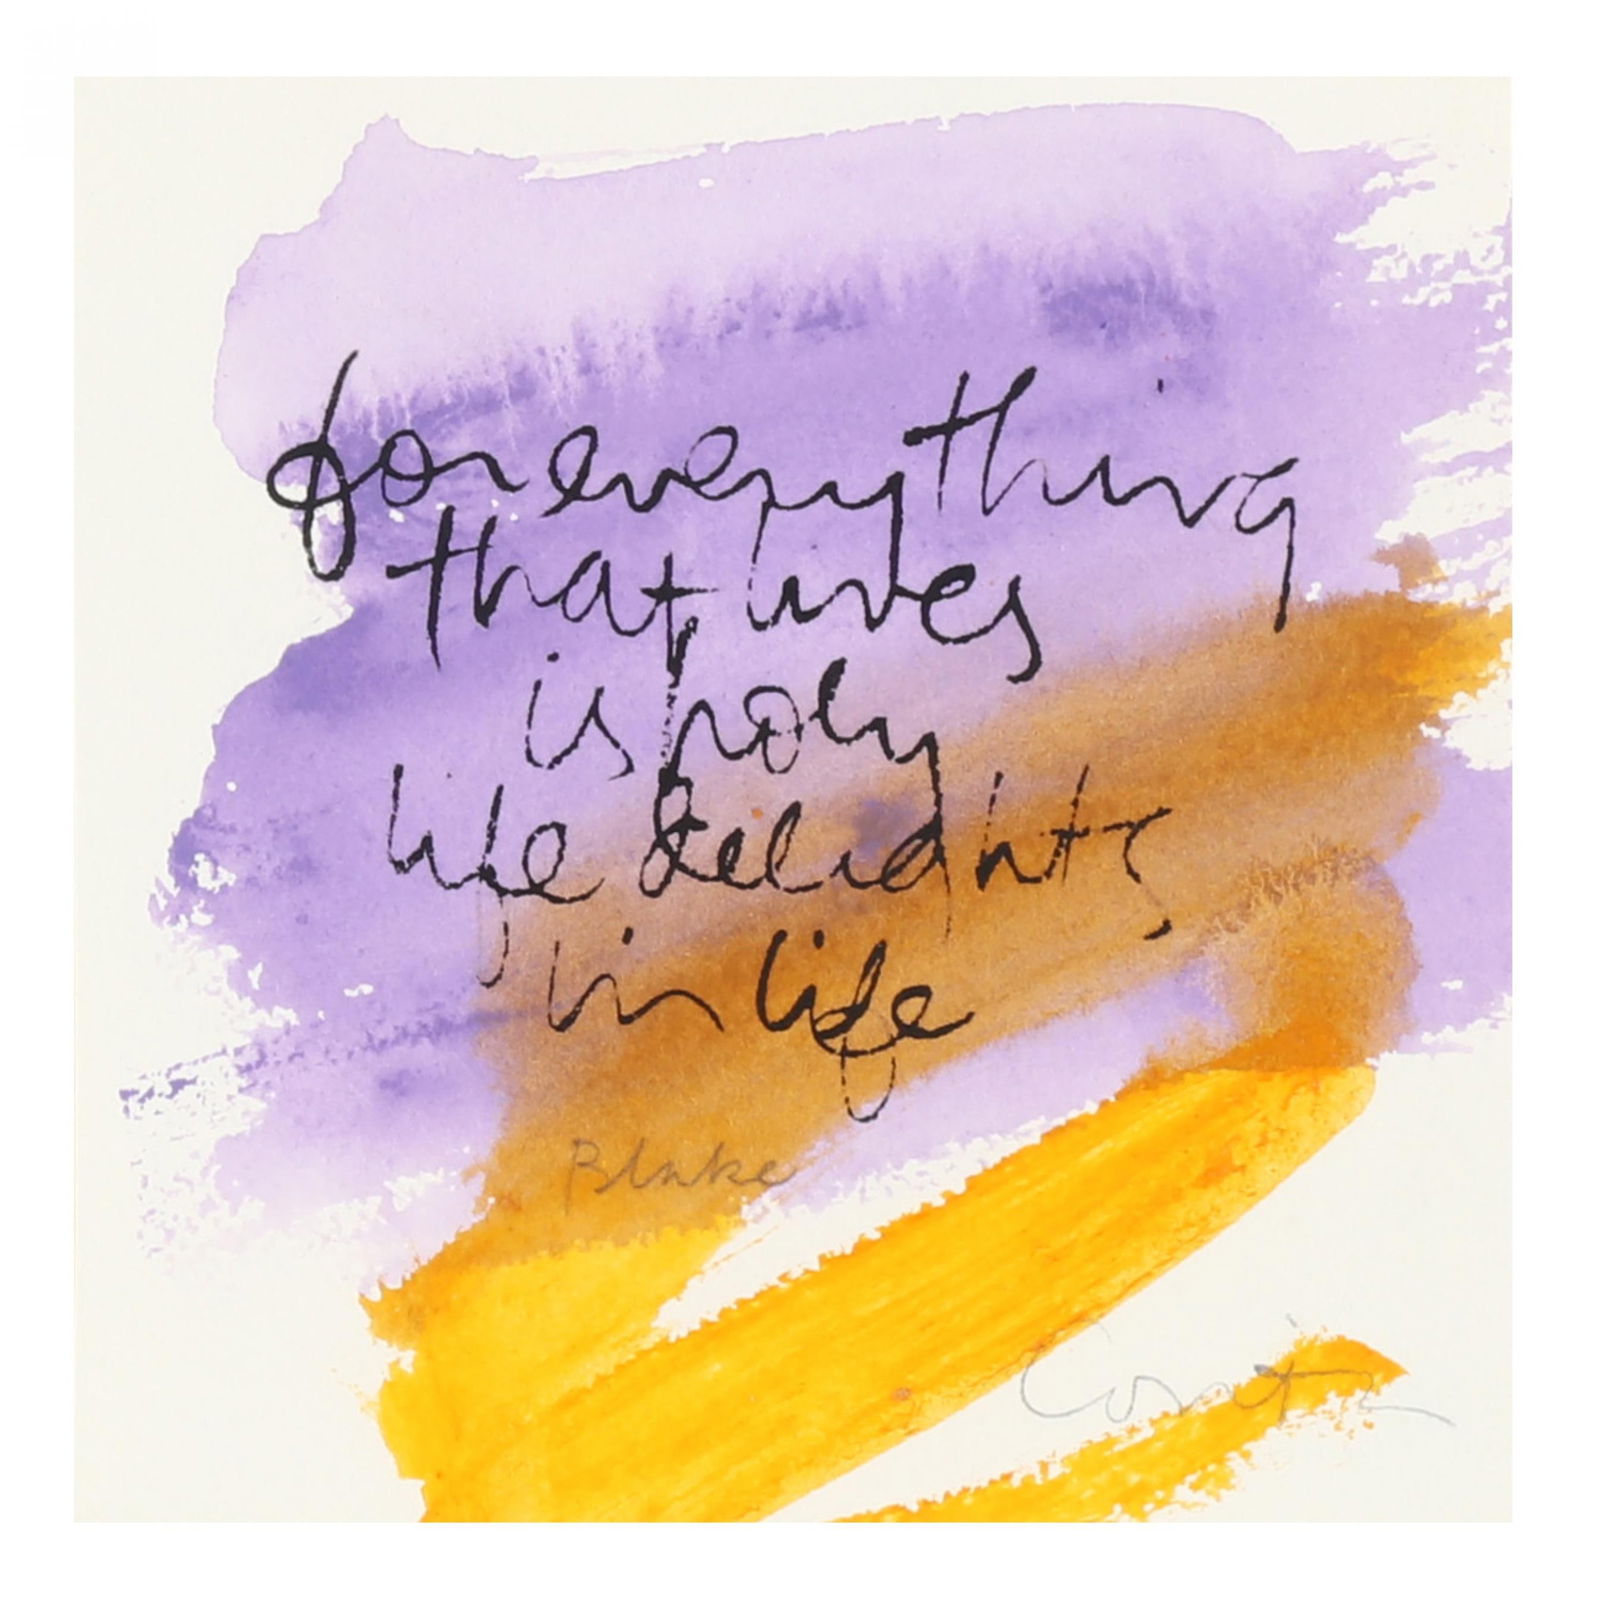 for everything
that lives
is holy
life delights
in life
Blake
Corita